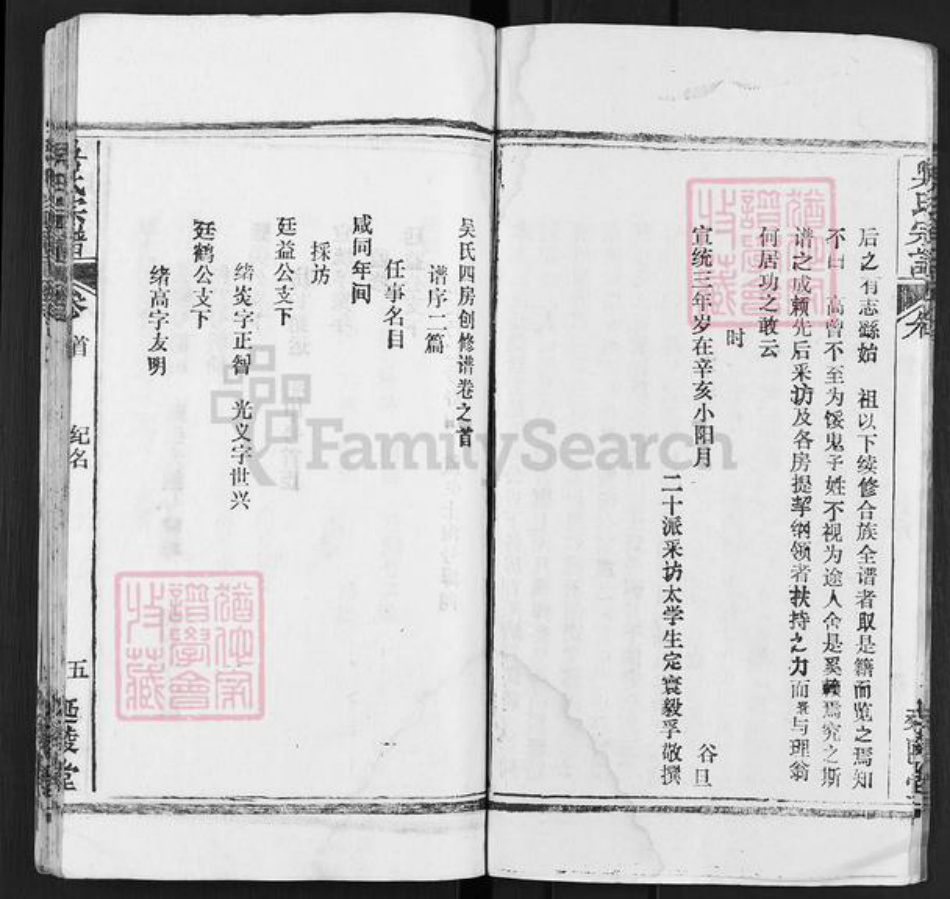 吴氏宗谱
后之有志繇始　祖以下续修合族全谱者取是籍而览之焉知
不由　高曾不至为馁鬼子姓不视为途人舍是奚赖焉究之斯
谱之成赖先后采访及各房提挈纲领者扶持之力而与理翁
何居功之敢云
时
宣统三年岁在辛亥小阳月　谷旦
二十派采访太学生定寰毅孚敬撰
吴氏四房创修谱卷之首
谱序二篇
任事名目
咸同年间
採坊
廷益公支下
绪炎字正智　光义字世兴
廷鹤公支下
绪高字友明
吴氏宗谱　卷首　纪名　五　延陵堂
FamilySearch